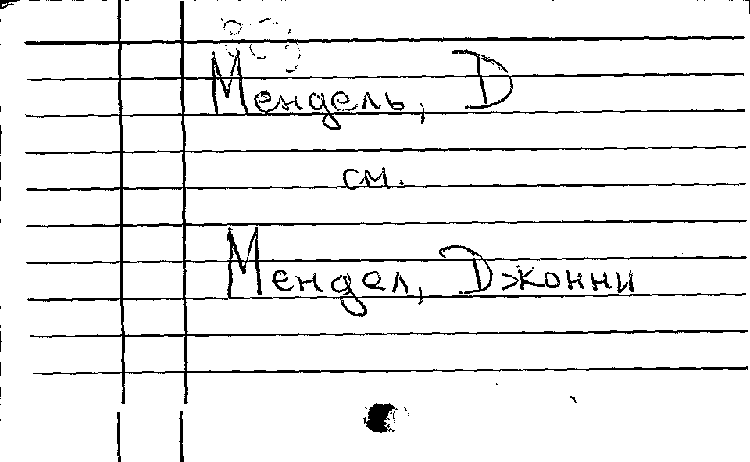 Мендель, D
см.
Мендел, Джонни